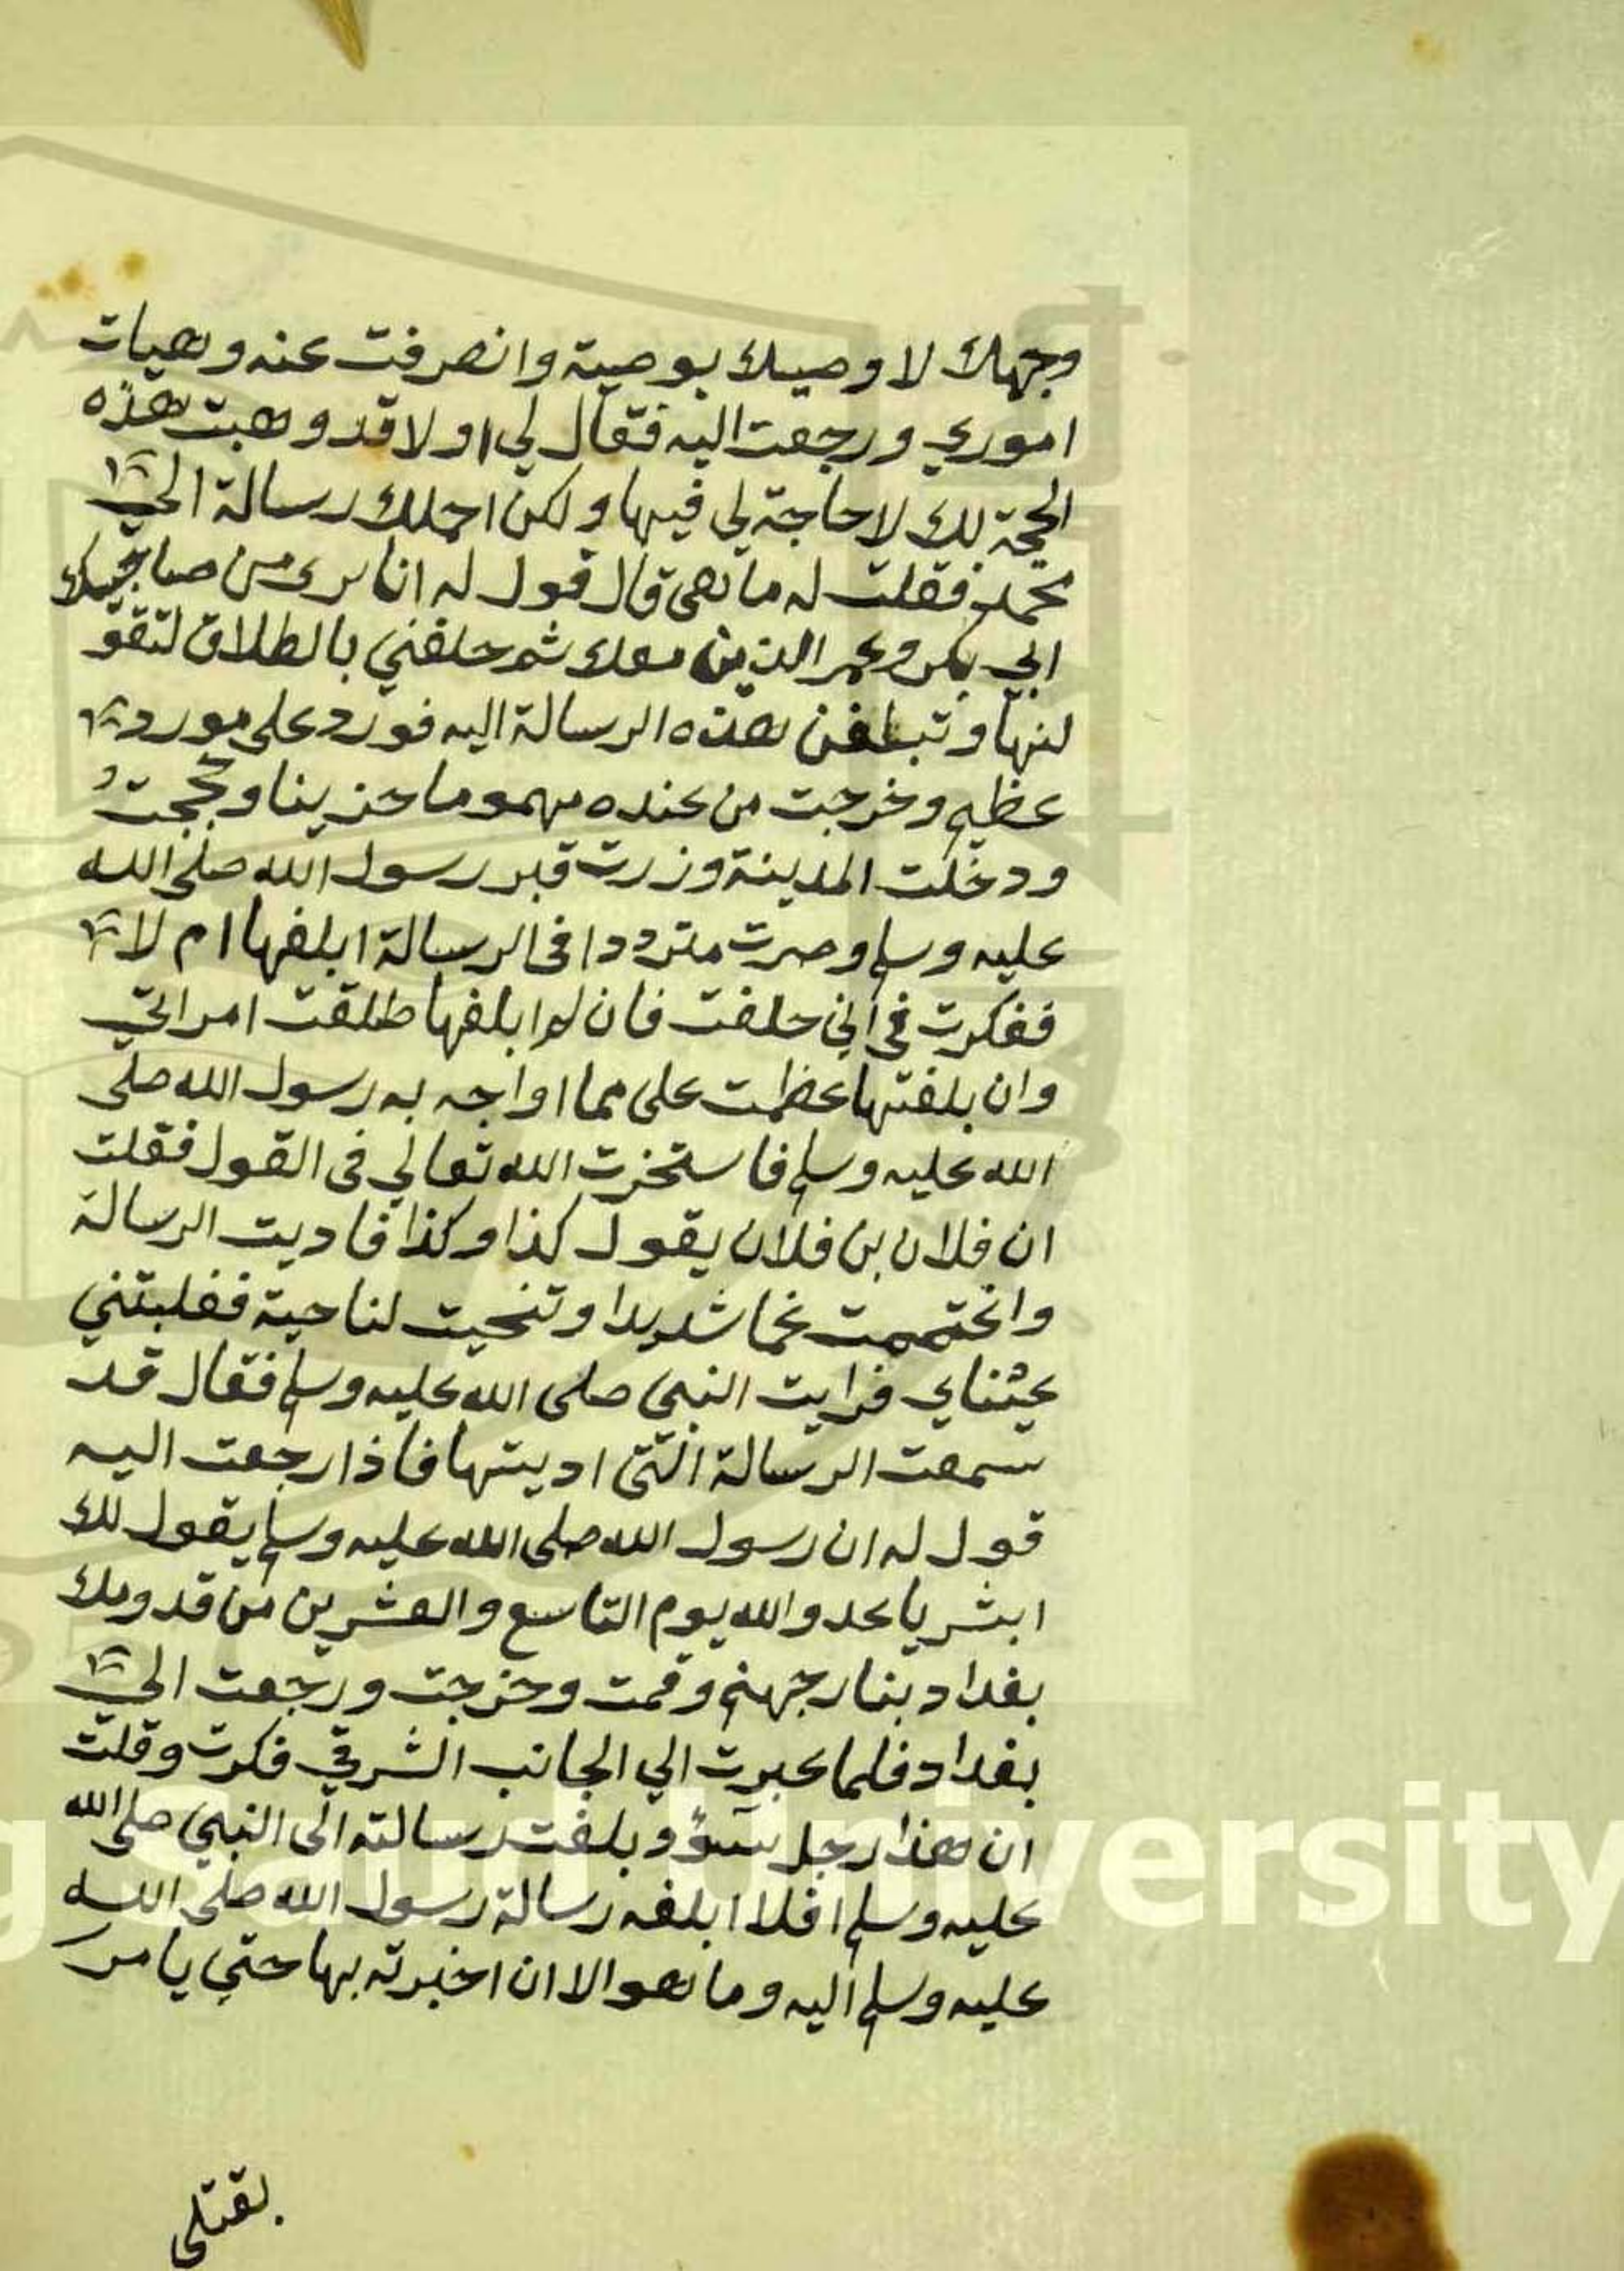 وجهك لاوصيك بوصية وانصرفت عنه وهيات
اموري ورجعت اليه فقال لي اولا قد وهبت هذه
الحجة لك لا حاجة لي فيها ولكن احملك رسالة الي
محمد فقلت له ما هي قال قول له انا برى من صاحبيك
ابي بكر وعمر الذين معك ثم حلفني بالطلاق لتقو
لنها وتبلغن هذه الرسالة اليه فورد على مورد
عظيم وخرجت من عنده مهموما حزينا وحججت
ودخلت المدينة وزرت قبر رسول الله صلى الله
عليه وسلم وصرت مترددا في الرسالة ابلغها ام لا
ففكرت في اني حلفت فان لم ابلغها طلقت امراتي
وان بلغتها عظمت على مما اواجه به رسول الله صلى
الله عليه وسلم فاستخرت الله تعالي في القول فقلت
ان فلان بن فلان يقول كذا وكذا فاديت الرسالة
واغتممت غما شديدا وتنحيت لناحية فغلبتني
عيناي فرايت النبي صلى الله عليه وسلم فقال قد
سمعت الرسالة التي اديتها فاذا رجعت اليه
قول له ان رسول الله صلى الله عليه وسلم يقول لك
ابشر يا عدو الله يوم التاسع والعشرين من قدومك
بغداد بنار جهنم وقمت وخرجت ورجعت الي
بغداد فلما عبرت الي الجانب الشرقي فكرت وقلت
ان هذا رجل سوء وبلغت رسالته الى النبي صلى الله
عليه وسلم افلا ابلغه رسالة رسول الله صلى الله
عليه وسلم اليه وما هو الا ان اخبرته بها حتي يامر
بقتلي
g Saud University